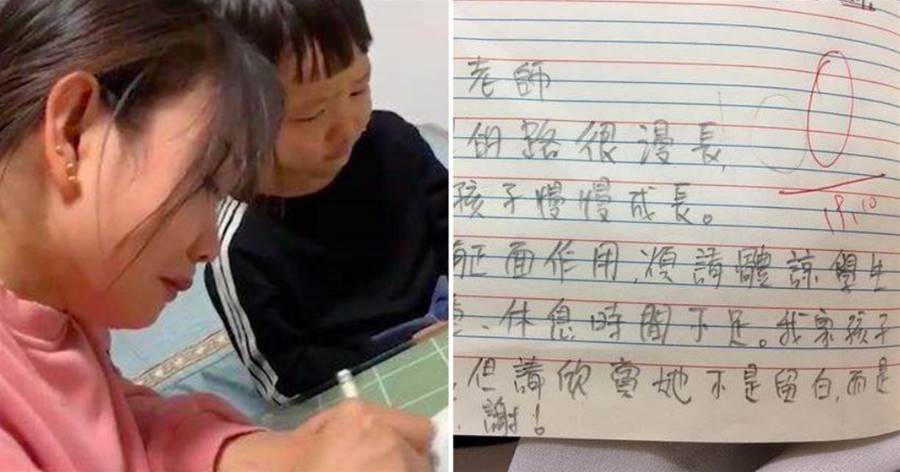 老師
的路很漫長,
孩子慢慢成長。
正面作用,煩請體諒學生
、休息時間不足。我家孩子
,但請欣賞她不是留白,而是
謝!